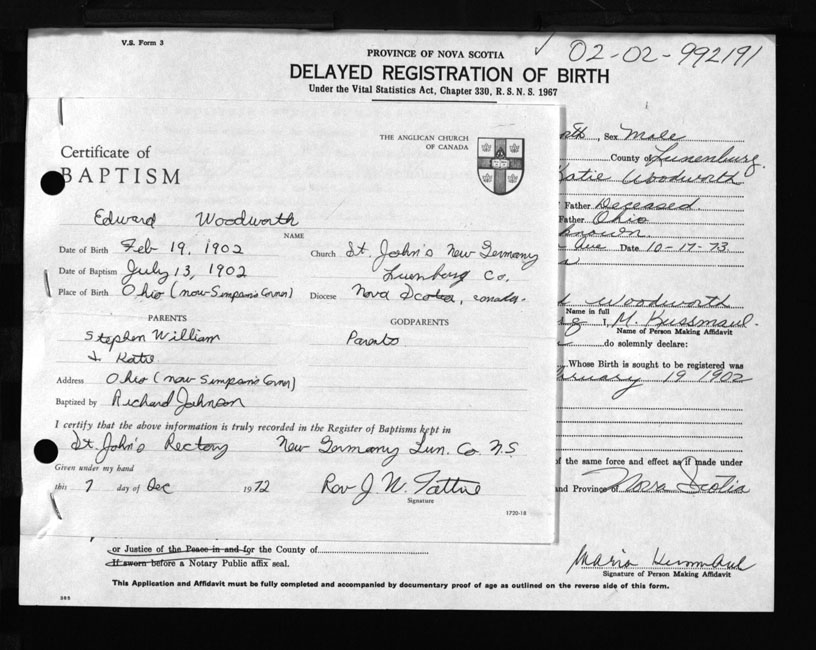 V.S. Form 3
PROVINCE OF NOVA SCOTIA
02-02-992191
DELAYED REGISTRATION OF BIRTH
Under the Vital Statistics Act, Chapter 330, R.S.N.S. 1967
THE ANGLICAN CHURCH
OF CANADA
Certificate of
BAPTISM
Edward Woodworth
NAME
Date of Birth Feb 19, 1902
Church St. John's New Germany
Date of Baptism July 13, 1902
Co.
Place of Birth Ohio (now Simpson's Corner)
Diocese Nova Scotia, Canada.
PARENTS
GODPARENTS
Stephen William
Parents
& Katie
Address Ohio (now Simpson's Corner)
Baptized by Richard Johnson
I certify that the above information is truly recorded in the Register of Baptisms kept in
St. John's Rectory New Germany Lun. Co. N.S
Given under my hand
this 7 day of Dec 1972
Rev J. W.
Signature
1720-18
Sex Male
County of Lunenburg.
Katie Woodworth
Father Deceased.
Father Ohio
Ave Date 10-17-73
Woodworth
Name in full
I, M. Kussmaul.
Name of Person Making Affidavit
do solemnly declare:
Whose Birth is sought to be registered was
19 1902
of the same force and effect as if made under
and Province of Nova Scotia
or Justice of the Peace in and for the County of
If sworn before a Notary Public affix seal.
Signature of Person Making Affidavit
This Application and Affidavit must be fully completed and accompanied by documentary proof of age as outlined on the reverse side of this form.